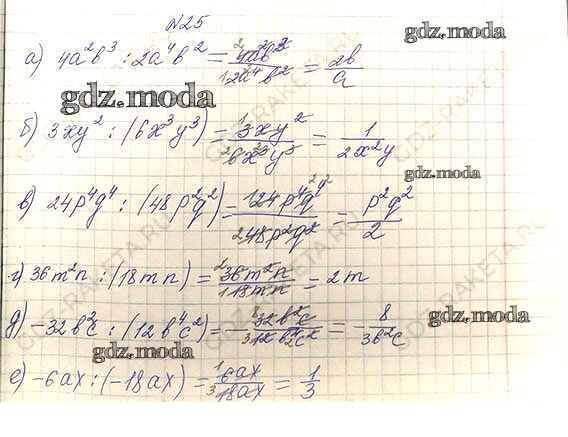 N25
gdz.moda
а) 4a²b³ : 2a⁴b² = 4a²b³/2a⁴b² = 2b/a
gdz.moda
б) 3xy² : (6x³y³) = 3xy²/6x³y³ = 1/2x²y
gdz.moda
в) 24p⁴q⁴ : (48p²q²) = 24p⁴q⁴/48p²q² = p²q²/2
г) 36m²n : (18mn) = 36m²n/18mn = 2m
д) -32b²c : (12b⁴c²) = -32b²c/12b⁴c² = 8/3b²c
gdz.moda
gdz.moda
е) -6ax : (-18ax) = 6ax/18ax = 1/3